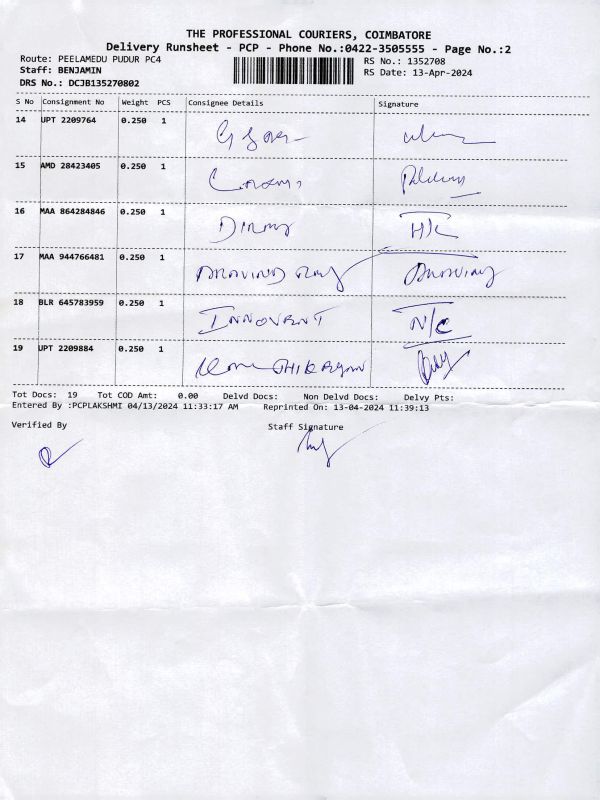 THE PROFESSIONAL COURIERS, COIMBATORE
Delivery Runsheet - PCP - Phone No.:0422-3505555 - Page No.:2
Route: PEELAMEDU PUDUR PC4 RS No.: 1352708
Staff: BENJAMIN RS Date: 13-Apr-2024
DRS No.: DCJB135270802
S No Consignment No Weight PCS Consignee Details Signature
14 UPT 2209764 0.250 1
15 AMD 28423405 0.250 1
16 MAA 864284846 0.250 1
17 MAA 944766481 0.250 1 ARAVIND
18 BLR 645783959 0.250 1 INNOVENT N/C
19 UPT 2209884 0.250 1
Tot Docs: 19 Tot COD Amt: 0.00 Delvd Docs: Non Delvd Docs: Delvy Pts:
Entered By :PCPLAKSHMI 04/13/2024 11:33:17 AM Reprinted On: 13-04-2024 11:39:13
Verified By Staff Signature